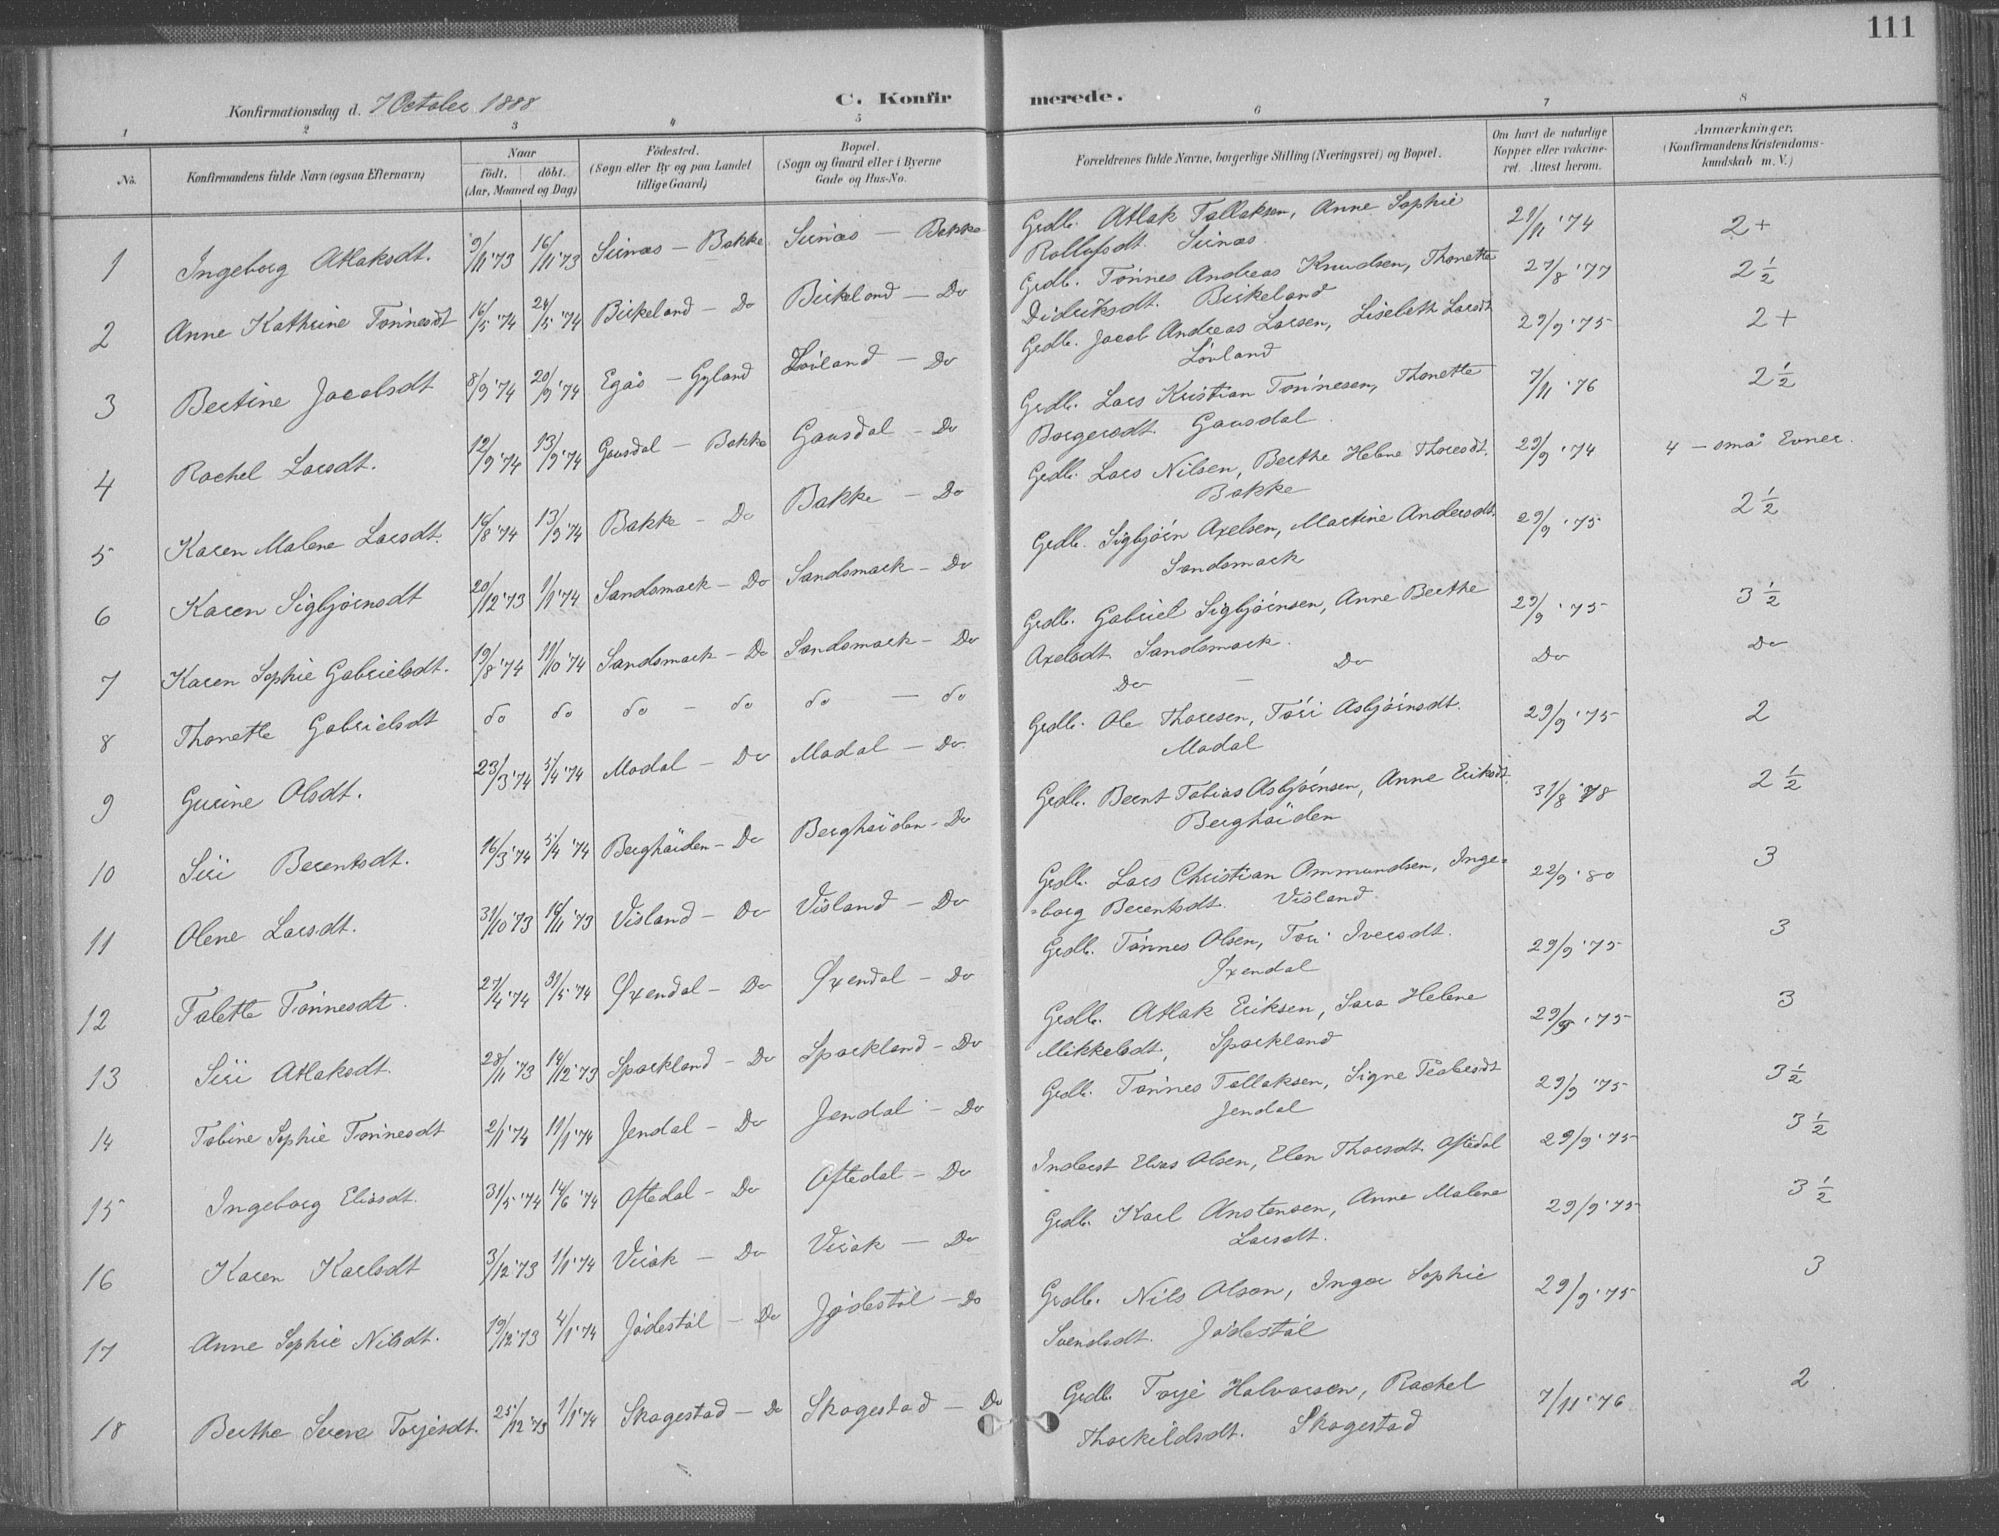 111
Konfirmationsdag d. 7 October 1888
C. Konfirmerede.
1 2 3 4 5 6 7 8
No.
Konfirmandens fulde Navn (ogsaa Efternavn)
Naar
födt. döbt.
(Aar, Maaned og Dag)
Födested.
(Sogn eller By og paa Landet
tillige Gaard)
Bopæl.
(Sogn og Gaard eller i Byerne
Gade og Hus-No.
Forældrenes fulde Navne, borgerlige Stilling (Næringsvei) og Bopæl.
Om havt de naturlige
Kopper eller vakcine-
ret. Attest herom.
Anmærkninger.
(Konfirmandens Kristendoms-
kundskab m. V.)
1 Ingeborg Atlaksdt. 9/11 '73 16/11 '73 Sirnæs — Bakke Sirnæs — Bakke Grdbr. Atlak Tallaksen, Anne Sophie 29/11 '74 2+
Rollufsdt Sirnæs
2 Anne Kathrine Tönnesdt 16/5 '74 24/5 '74 Birkeland — Do Birkeland — Do Grdb. Tönnes Andreas Knudsen, Thonette 27/8 '77 2 1/2
Didriksdt. Birkeland
3 Bertine Jacobsdt 8/9 '74 20/9 '74 Egås — Gyland Lövland — Do Grdb. Jacob Andreas Larsen, Lisebeth Larsdt 29/9 '75 2+
Lövland
4 Rachel Larsdt. 12/9 '74 13/9 '74 Gausdal — Bakke Gausdal — Do Grdb. Lars Kristian Tönnesen, Thonette 7/11 '76 2 1/2
Borgersdt. Gausdal
5 Karen Malene Larsdt. 16/8 '74 13/9 '74 Bakke — Do Bakke — Do Grdb. Lars Nilsen, Berthe Helene Thoresdt. 29/9 '74 4 — små Evner.
Bakke
6 Karen Sigbjörnsdt 20/12 '73 1/1 '74 Sandsmark — Do Sandsmark — Do Grdb. Sigbjörn Axelsen, Martine Andersdt. 29/9 '75 2 1/2
Sandsmark
7 Karen Sophie Gabrielsdt. 19/8 '74 11/10 '74 Sandsmark — Do Sandsmark — Do Grdb. Gabriel Sigbjörnsen, Anne Berthe 29/9 '75 3 1/2
Axelsdt. Sandsmark
8 Thonette Gabrielsdt do do do — do do — do Do — Do Do Do
9 Gurine Olsdt. 23/3 '74 5/4 '74 Modal — Do Modal — Do Grdb. Ole Thoresen, Töri Asbjörnsdt. 29/9 '75 2
Modal
10 Siri Berentsdt. 16/3 '74 5/4 '74 Berghöiden — Do Berghöiden — Do Grdb. Bernt Tobias Asbjörnsen, Anne Eriksdt. 31/8 '78 2 1/2
Berghöiden
11 Olene Larsdt. 31/10 '73 16/11 '73 Visland — Do Visland — Do Grdb. Lars Christian Ommundsen, Inge= 22/9 '80 3
=borg Berentsdt. Visland
12 Talette Tönnesdt. 27/4 '74 31/5 '74 Øxendal — Do Øxendal — Do Grdb. Tönnes Olsen, Tori Iversdt. 29/9 '75 3
Øxendal
13 Siri Atlaksdt. 28/11 '73 14/12 '73 Sparkland — Do Sparkland — Do Grdb. Atlak Eriksen, Sara Helene 29/9 '75 3
Mikkelsdt., Sparkland
14 Tobine Sophie Tönnesdt 2/1 '74 11/1 '74 Jendal — Do Jendal — Do Grdb. Tönnes Tallaksen, Signe Peabesdt 29/9 '75 3 1/2
Jendal
15 Ingeborg Eliasdt. 31/5 '74 14/6 '74 Oftedal — Do Oftedal — Do Inderst Elias Olsen, Elen Thorsdt. Oftedal 29/9 '75 3 1/2
16 Karen Karlsdt 3/12 '73 1/1 '74 Virak — Do Virak — Do Grdb. Karl Anstensen, Anne Malene 29/9 '75 3 1/2
Larsdt.
17 Anne Sophie Nilsdt. 19/12 '73 4/1 '74 Jödestöl — Do Jödestöl — Do Grdb. Nils Olsen, Inger Sophie 29/9 '75 3
Svendsdt. Jödestöl
18 Berthe Serine Torjesdt. 25/12 '73 1/1 '74 Skogestad — Do Skogestad — Do Grdb. Torje Halvorsen, Rachel 7/11 '76 2
Thorkildsdt. Skogestad